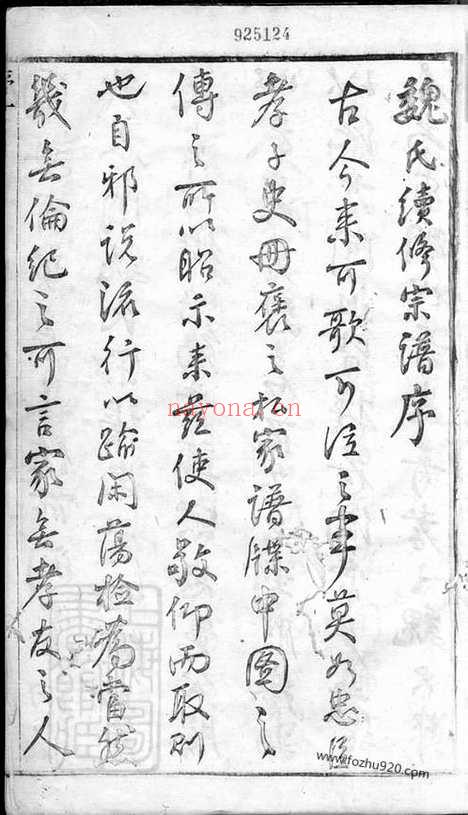 925124
魏氏續修宗譜序
古今來可歌可泣之事莫如忠臣
孝子史冊褒之私家譜牒中图之
傳之所以昭示來茲使人敬仰而取則
也自邪説流行以踰闲蕩检為當然
幾無倫紀之可言家無孝友之人
nayona.cn
www.fozhu920.com